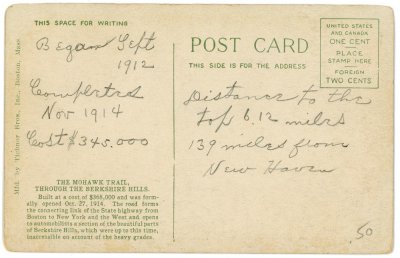 THIS SPACE FOR WRITING
Began Sept
1912
Completed
Nov 1914
Cost $345.000
THE MOHAWK TRAIL,
THROUGH THE BERKSHIRE HILLS.
Built at a cost of $368,000 and was form-
ally opened Oct. 27, 1914. The road forms
the connecting link of the State highway from
Boston to New York and the West and opens
to automobilists a section of the beautiful parts
of Berkshire Hills, which were up to this time,
inaccessible on account of the heavy grades.
Mfd. by Tichnor Bros., Inc., Boston, Mass.
POST CARD
THIS SIDE IS FOR THE ADDRESS
UNITED STATES
AND CANADA
ONE CENT
PLACE
STAMP HERE
FOREIGN
TWO CENTS
Distance to the
top 6.12 miles
139 miles from
New Haven
50